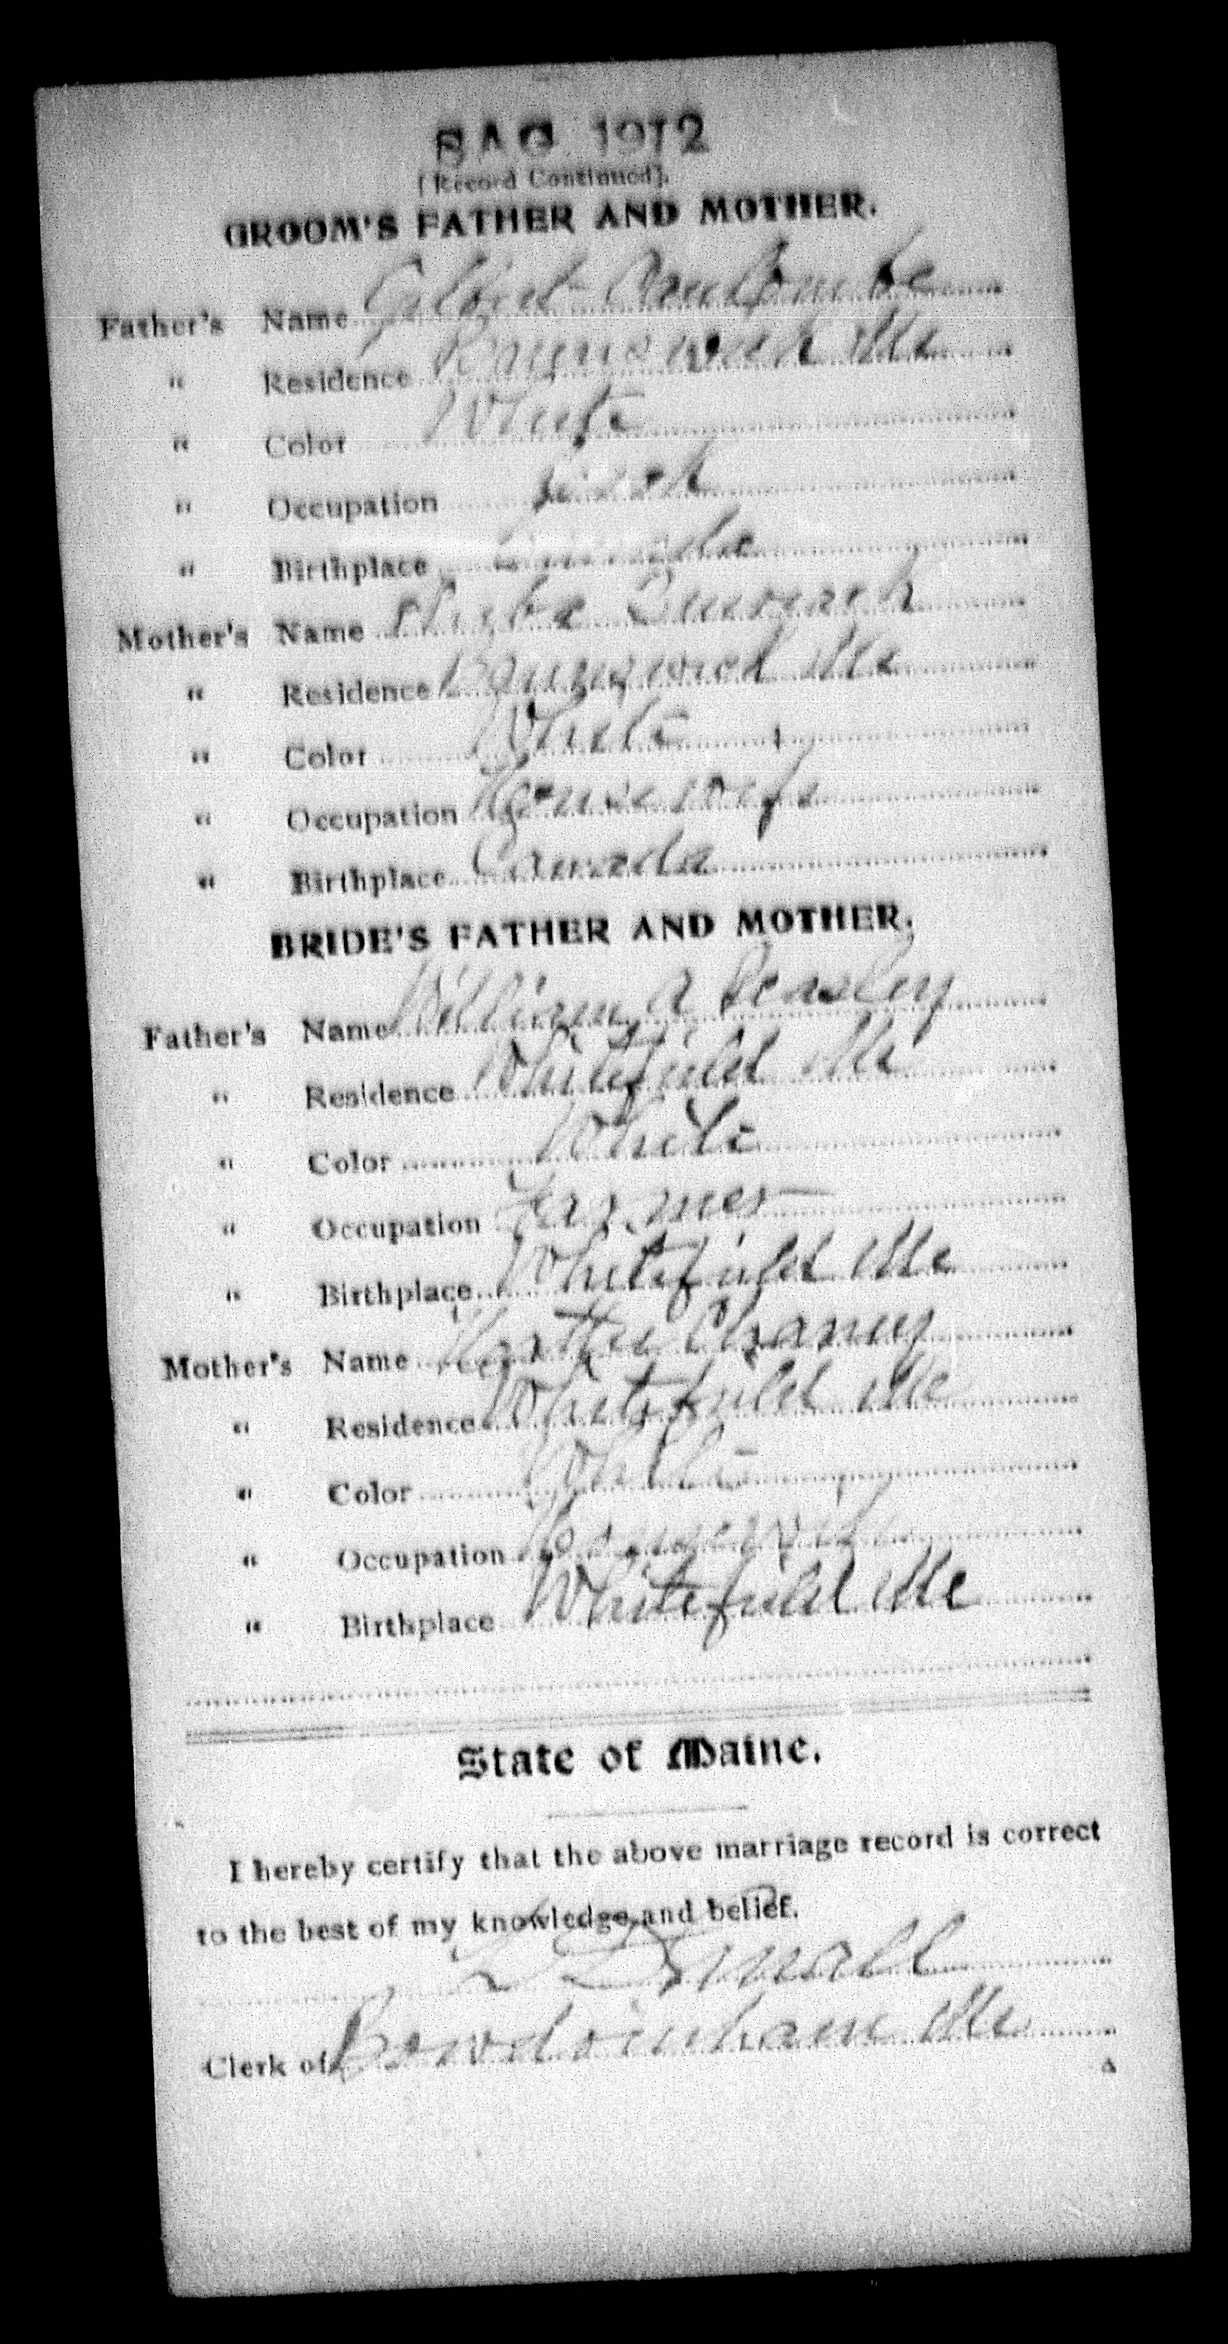 SAG 1912
[Record Continued].
GROOM'S FATHER AND MOTHER.
Father's Name Gilbert
" Residence Brunswick Me
" Color White
" Occupation
" Birthplace Canada
Mother's Name
" Residence Brunswick Me
" Color White
" Occupation Housewife
" Birthplace Canada
BRIDE'S FATHER AND MOTHER.
Father's Name William A Peasley
" Residence Whitefield Me
" Color White
" Occupation Farmer
" Birthplace Whitefield Me
Mother's Name Hattie Chaney
" Residence Whitefield Me
" Color White
" Occupation Housewife
" Birthplace Whitefield Me
State of Maine.
I hereby certify that the above marriage record is correct
to the best of my knowledge and belief.
Small
Clerk of Bowdoinham Me